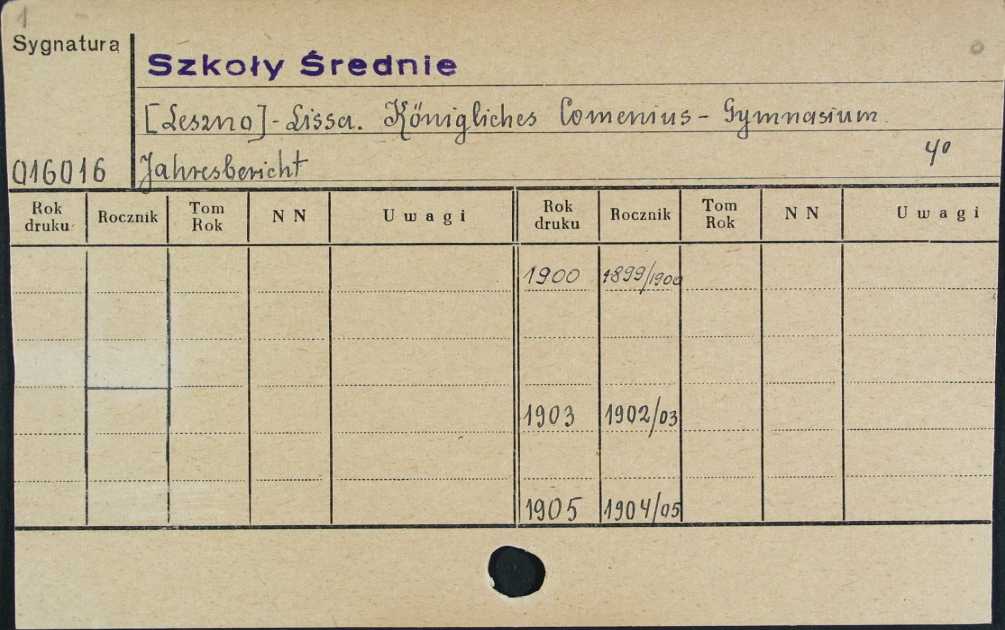 1
Sygnatura
Szkoły Średnie
[Leszno] - Lissa. Königliches Comenius - Gymnasium.
016016 Jahresbericht 4°
Rok druku Rocznik Tom Rok N N Uwagi Rok druku Rocznik Tom Rok N N Uwagi
1900 1899/1900
1903 1902/03
1905 1904/05